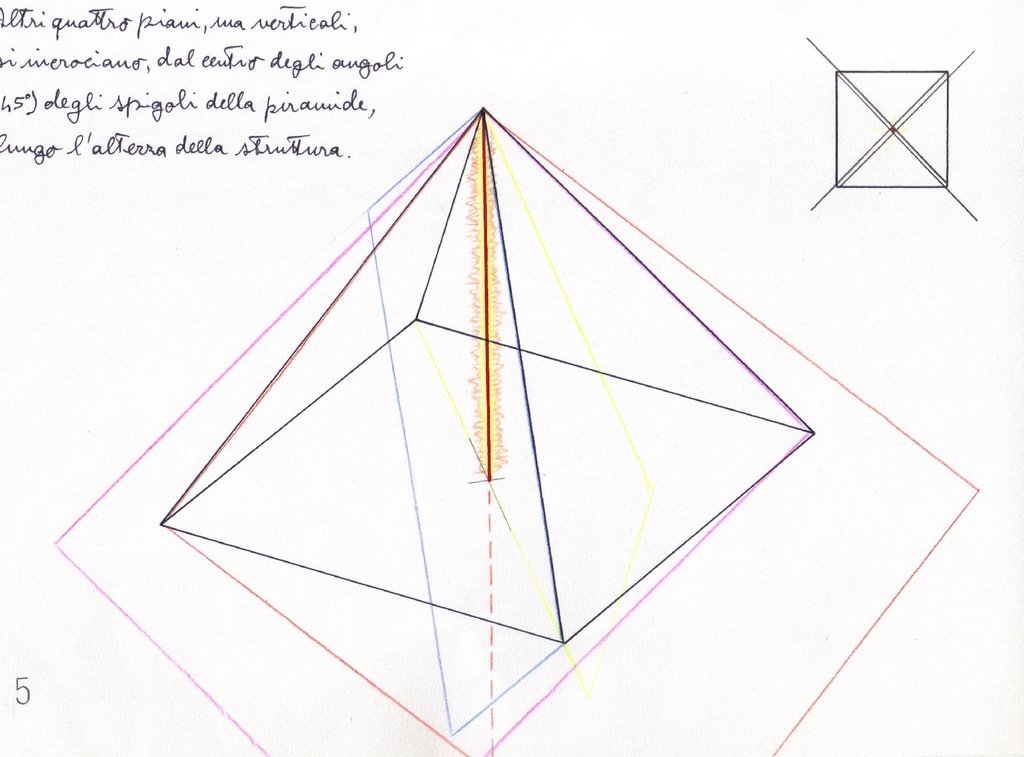 Altri quattro piani, ma verticali,
si incrociano, dal centro degli angoli
(45°) degli spigoli della piramide,
lungo l'altezza della struttura.
5